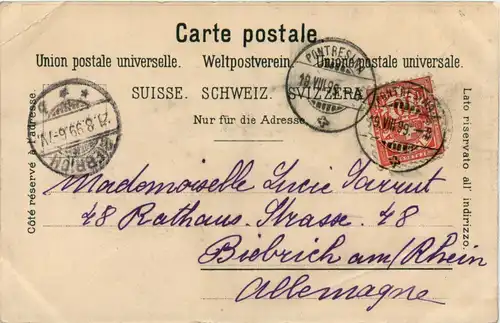 Carte postale.
Union postale universelle. Weltpostverein. Unione postale universale.
SUISSE. SCHWEIZ. SVIZZERA.
Nur für die Adresse.
Côté réservé à l'adresse.
Lato riservato all' indirizzo.
PONTRESINA
19.VIII.99.
PONTRESINA
VIII.99.
BIEBRICH
21.8.99.6-7V.
Mademoiselle Lucie Sarrut
48 Rathaus-Strasse. 48
Biebrich am/Rhein
Allemagne